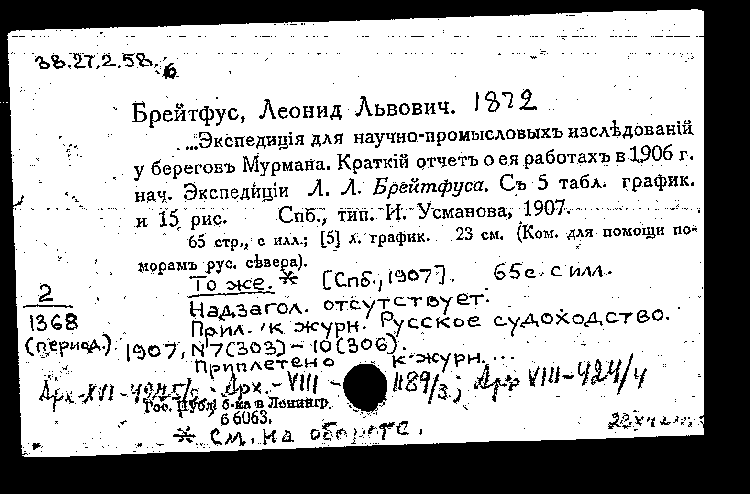 38.27.2.58.
б
Брейтфус, Леонид Львович. 1872
...Экспедиція для научно-промысловыхъ изслѣдованій
у береговъ Мурмана. Краткій отчетъ о ея работахъ в 1906 г.
нач. Экспедиціи Л. Л. Брейтфуса. Съ 5 табл. график.
и 15 рис. Спб., тип. И. Усманова, 1907.
65 стр., с илл.; [5] л. график. 23 см. (Ком. для помощи по-
морамъ рус. сѣвера).
То же.* [Спб., 1907]. 65 с. с илл.
Надзагол. отсутствует.
Прил. к журн. Русское судоходство.
1907, N 7(303)–10(306).
Приплетено к журн...
2
1368
(период.)
Арх-XVI- Арх.-VIII- 1189/3; Арх VIII-424/4
Гос. Публ. б-ка в Ленингр.
б 6063.
* См. на обороте.